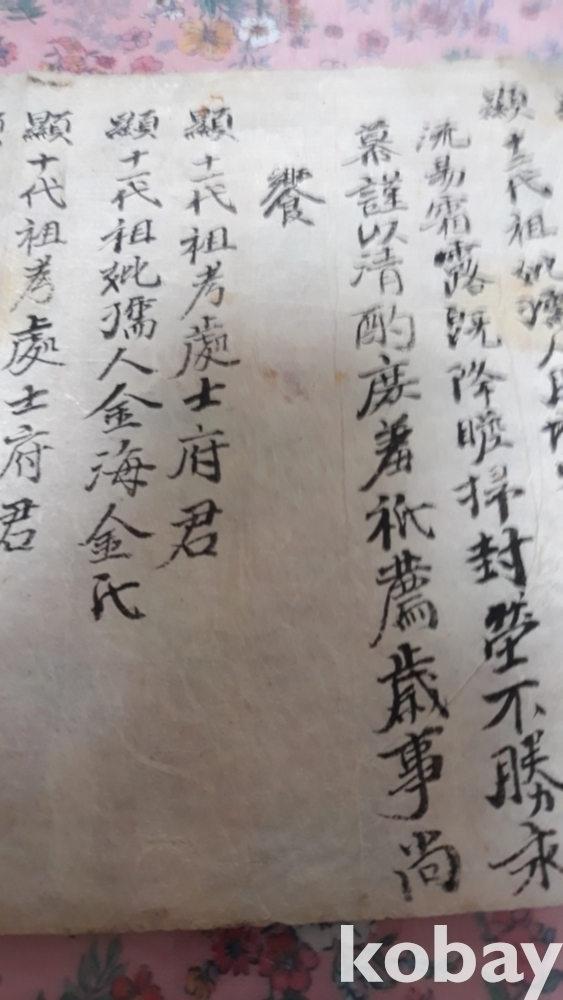 顯十二代祖妣孺人
流易霜露旣降瞻掃封塋不勝永
慕謹以清酌庶羞祗薦歲事尚
饗
顯十一代祖考處士府君
顯十一代祖妣孺人金海金氏
顯十代祖考處士府君
kobay